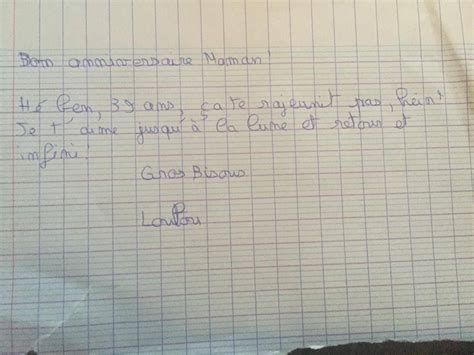 Bon anniversaire Maman !
Hé ben, 39 ans, ça te rajeunit pas, hein !
Je t'aime jusqu'à la lune et retour et
infini !
Gros Bisous
Loulou